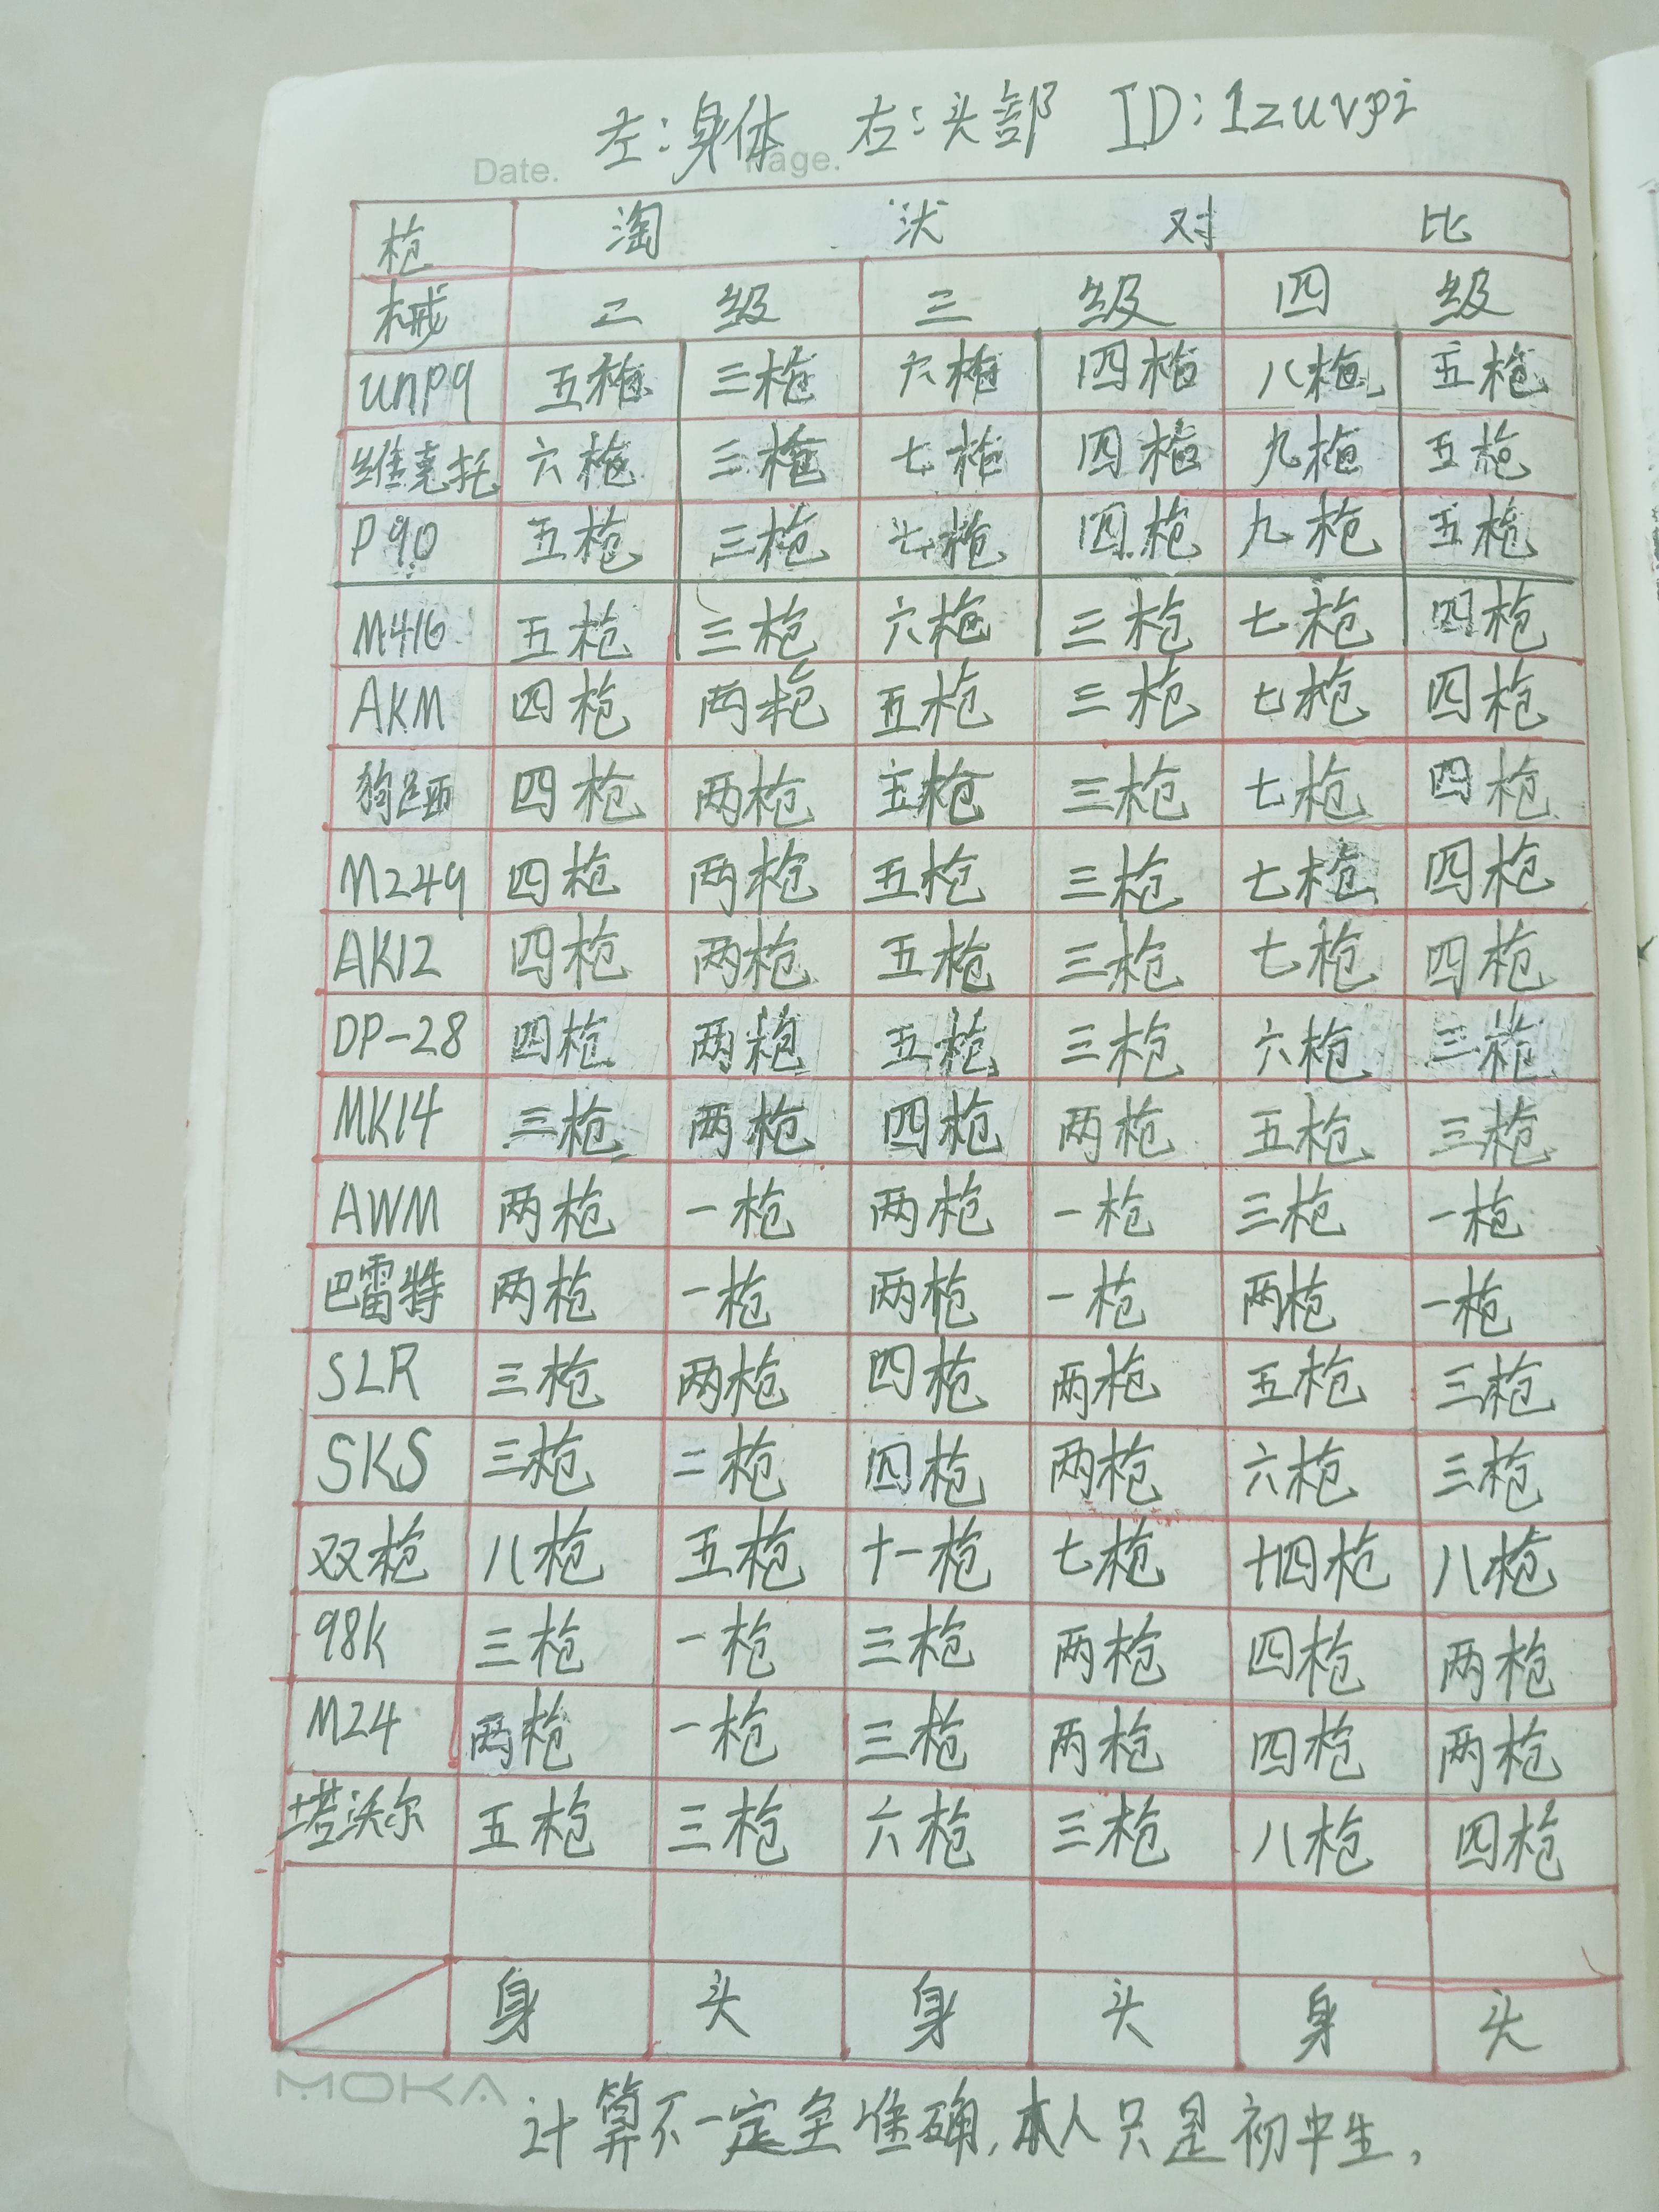 左：身体 右：头部 ID：1zuvpi
Date. Page.
枪 淘 汰 对 比
械 二 级 三 级 四 级
unp9 五枪 三枪 六枪 四枪 八枪 五枪
维克托 六枪 三枪 七枪 四枪 九枪 五枪
P90 五枪 三枪 七枪 四枪 九枪 五枪
M416 五枪 三枪 六枪 三枪 七枪 四枪
AKM 四枪 两枪 五枪 三枪 七枪 四枪
四枪 两枪 五枪 三枪 七枪 四枪
M249 四枪 两枪 五枪 三枪 七枪 四枪
AK12 四枪 两枪 五枪 三枪 七枪 四枪
DP-28 四枪 两枪 五枪 三枪 六枪 三枪
MK14 三枪 两枪 四枪 两枪 五枪 三枪
AWM 两枪 一枪 两枪 一枪 三枪 一枪
巴雷特 两枪 一枪 两枪 一枪 两枪 一枪
SLR 三枪 两枪 四枪 两枪 五枪 三枪
SKS 三枪 二枪 四枪 两枪 六枪 三枪
双枪 八枪 五枪 十一枪 七枪 十四枪 八枪
98k 三枪 一枪 三枪 两枪 四枪 两枪
M24 两枪 一枪 三枪 两枪 四枪 两枪
塔沃尔 五枪 三枪 六枪 三枪 八枪 四枪
身 头 身 头 身 头
MOKA
计算不一定全准确，本人只是初中生，